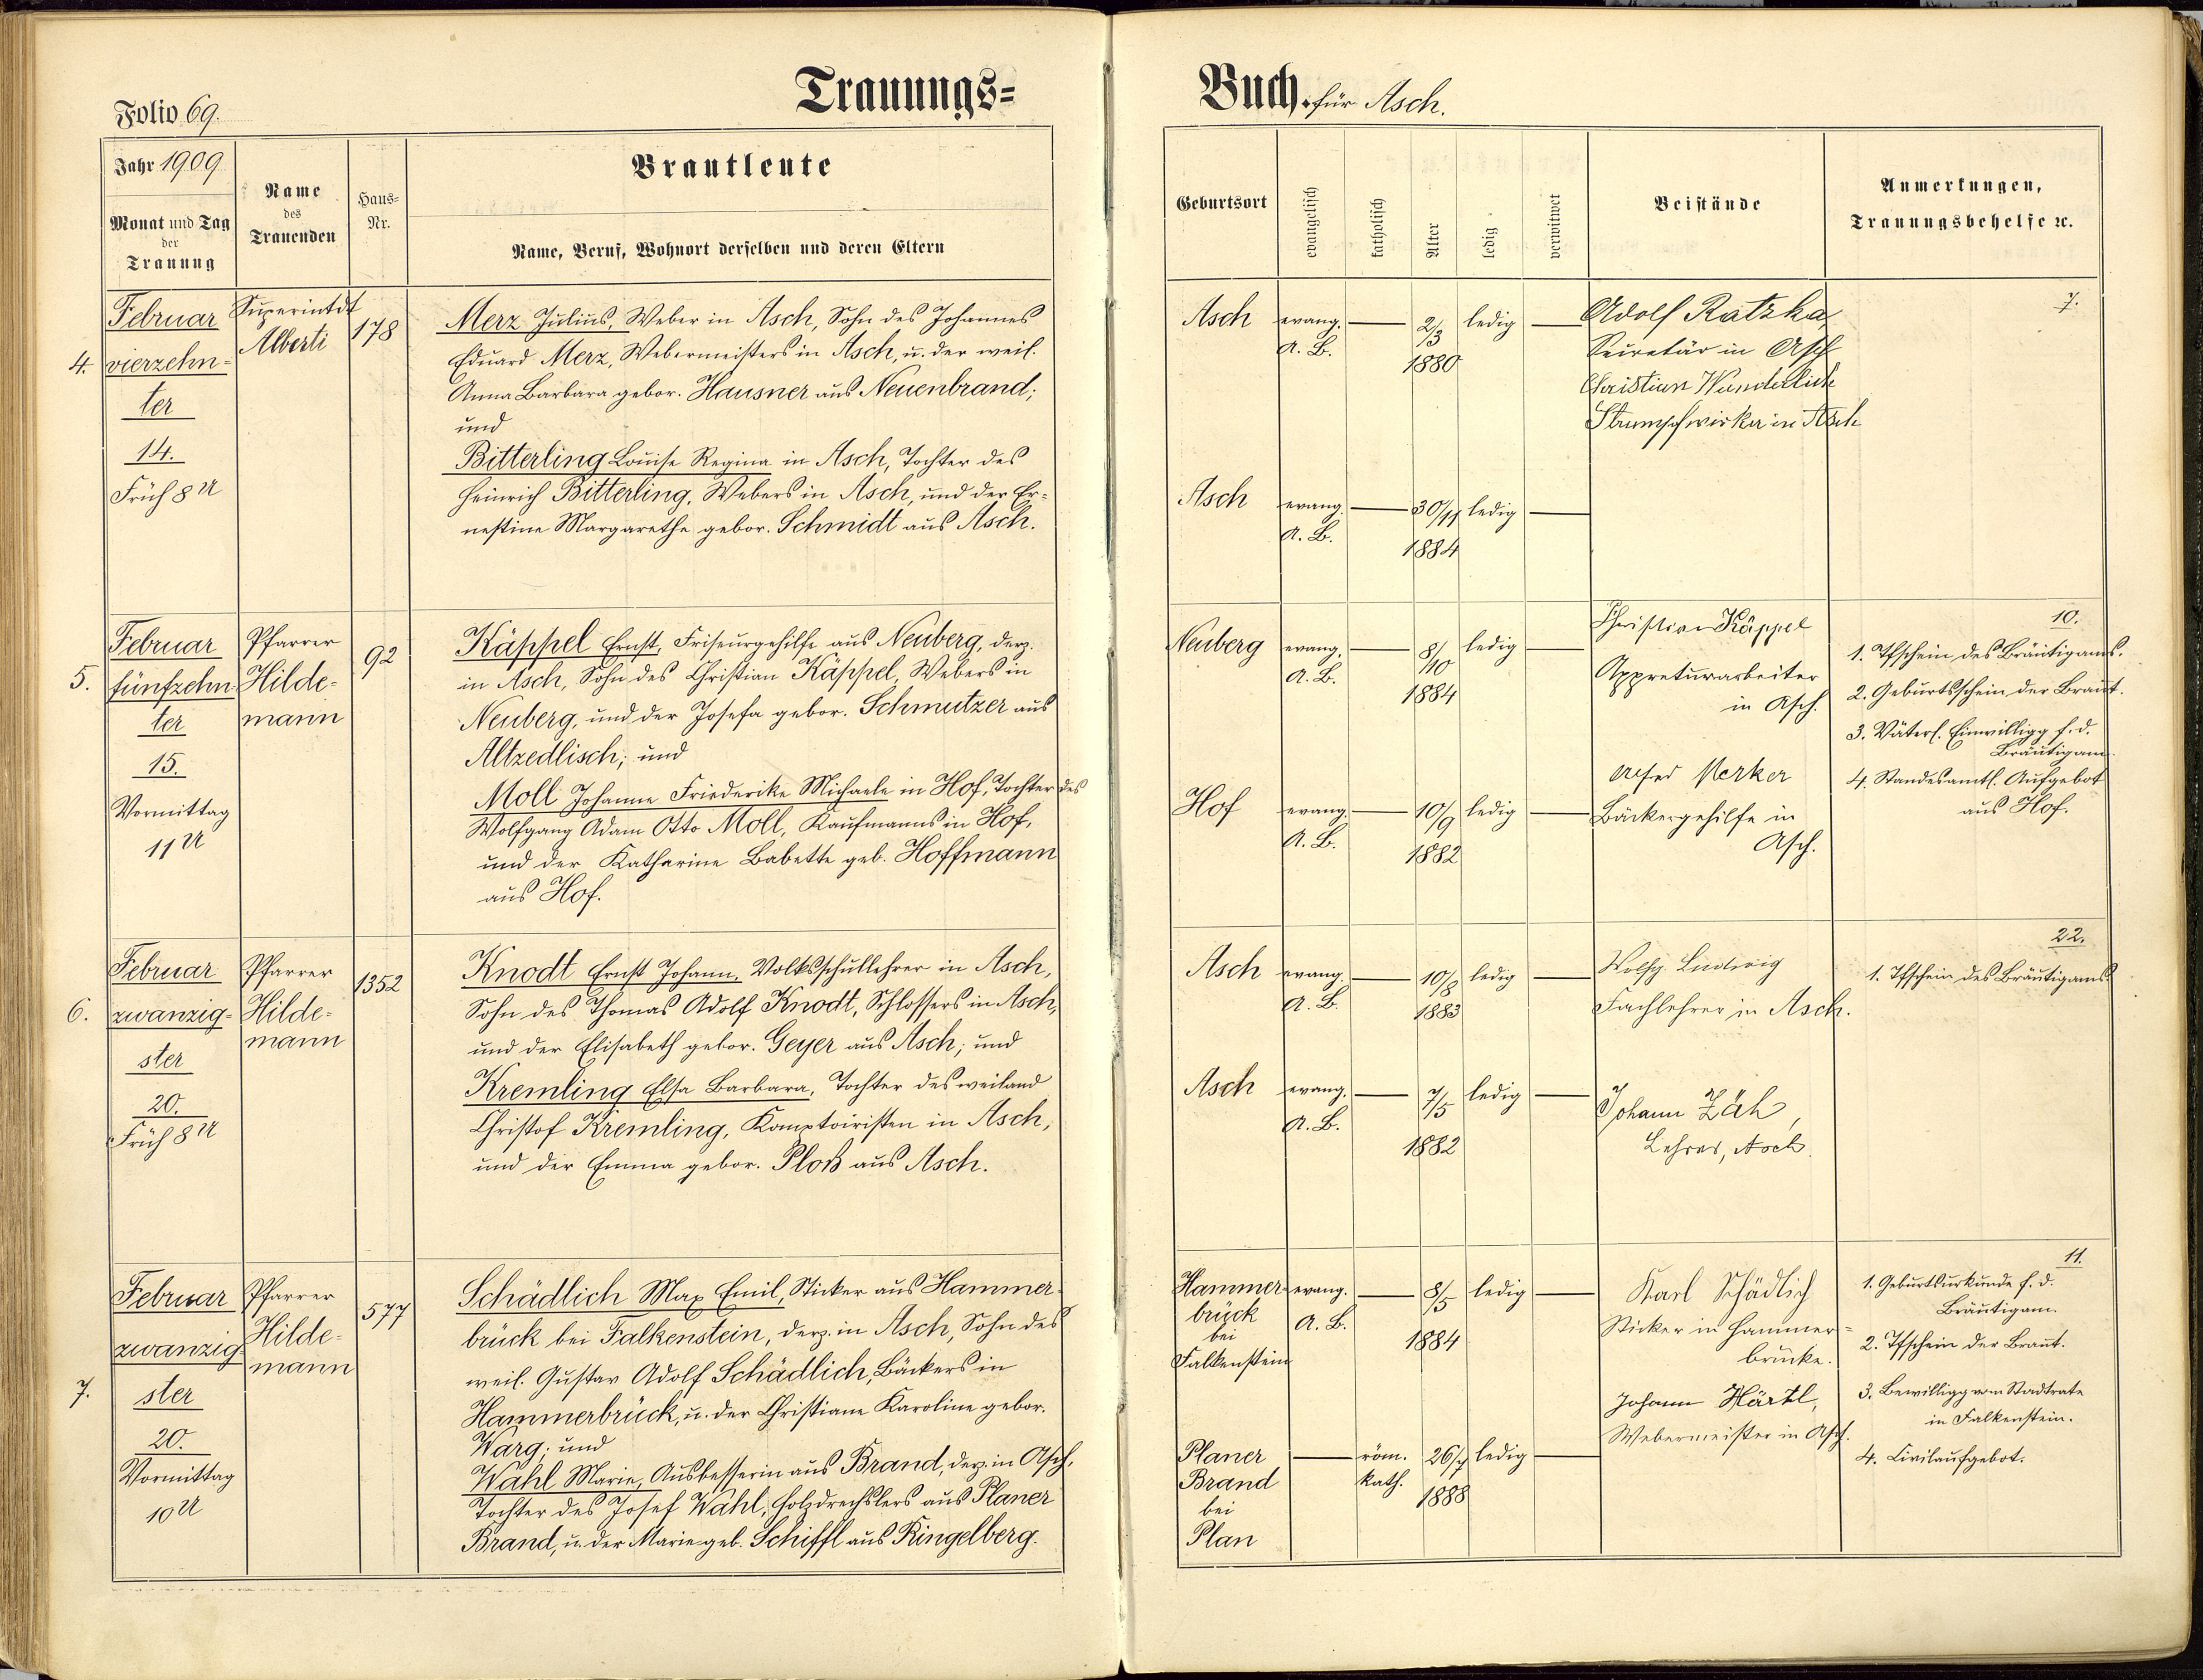 Trauungs=
Folio 69.
Jahr 1909
Monat und Tag
der
Trauung
Name
des
Trauenden
Haus=
Nr.
Brautleute
Name, Beruf, Wohnort derselben und deren Eltern
4.
Februar
vierzehn=
ter
14.
Früh 8 U
Superintdt
Alberti
178
Merz Julius, Weber in Asch, Sohn des Johannes
Eduard Merz, Webermeisters in Asch, u. der weil.
Anna Barbara gebor. Hausner aus Neuenbrand;
und
Bitterling Louise Regina in Asch, Tochter des
Heinrich Bitterling, Webers in Asch, und der Er=
nestine Margarethe gebor. Schmidt aus Asch.
5.
Februar
fünfzehn=
ter
15.
Vormittag
11 U
Pfarrer
Hilde=
mann
92
Käppel Ernst, Friseurgehilfe aus Neuberg, derz.
in Asch, Sohn des Christian Käppel, Webers in
Neuberg, und der Josefa gebor. Schmutzer aus
Altzedlisch; und
Moll Johanne Friederike Michaele in Hof, Tochter des
Wolfgang Adam Otto Moll, Kaufmanns in Hof,
und der Katharine Babette geb. Hoffmann
aus Hof.
6.
Februar
zwanzig=
ster
20.
Früh 8 U
Pfarrer
Hilde=
mann
1352
Knodt Ernst Johann, Volksschullehrer in Asch,
Sohn des Thomas Adolf Knodt, Schlossers in Asch,
und der Elisabeth gebor. Geyer aus Asch; und
Kremling Elsa Barbara, Tochter des weiland
Christof Kremling, Komptoiristen in Asch,
und der Emma gebor. Ploß aus Asch.
7.
Februar
zwanzig=
ster
20.
Vormittag
10 U
Pfarrer
Hilde=
mann
577
Schädlich Max Emil, Sticker aus Hammer=
brück bei Falkenstein, derz. in Asch, Sohn des
weil. Gustav Adolf Schädlich, Bäckers in
Hammerbrück, u. der Christiane Karoline gebor.
Warg; und
Wahl Marie, Ausbesserin aus Brand, derz. in Asch,
Tochter des Josef Wahl, Holzdrechslers aus Planer
Brand, u. der Marie geb. Schiffl aus Ringelberg.
Buch. für Asch.
Geburtsort
evangelisch
katholisch
Alter
ledig
verwitwet
Beistände
Anmerkungen,
Trauungsbehelfe ꝛc.
Asch evang. A. B. 2/3 1880 ledig
Adolf Ratzka,
Secretär in Asch
Christian Wunderlich
Strumpfwirker in Asch
7.
Asch evang. A. B. 30/11 1884 ledig
Neuberg evang. A. B. 8/10 1884 ledig
Christian Käppel
Appreturarbeiter
in Asch.
10.
1. Tfschein des Bräutigams.
2. Geburtsschein der Braut.
3. Väterl. Einwilligg f. d.
Bräutigam
4. Standesamtl. Aufgebot
aus Hof.
Hof evang. A. B. 10/9 1882 ledig
Merker
Bäckergehilfe in
Asch.
Asch evang. A. B. 10/8 1883 ledig
Wolfg. Ludwig
Fachlehrer in Asch.
22.
1. Tfschein des Bräutigams
Asch evang. A. B. 7/5 1882 ledig
Johann Zäh,
Lehrer, Asch.
Hammer=
brück
bei
Falkenstein
evang. A. B. 8/5 1884 ledig
Karl Schädlich
Sticker in Hammer=
brücke.
Johann Härtl,
Webermeister in Asch.
11.
1. Geburtsurkunde f. d.
Bräutigam.
2. Tfschein der Braut.
3. Bewilligg vom Stadtrate
in Falkenstein.
4. Civilaufgebot.
Planer
Brand
bei
Plan
röm. kath. 26/7 1888 ledig